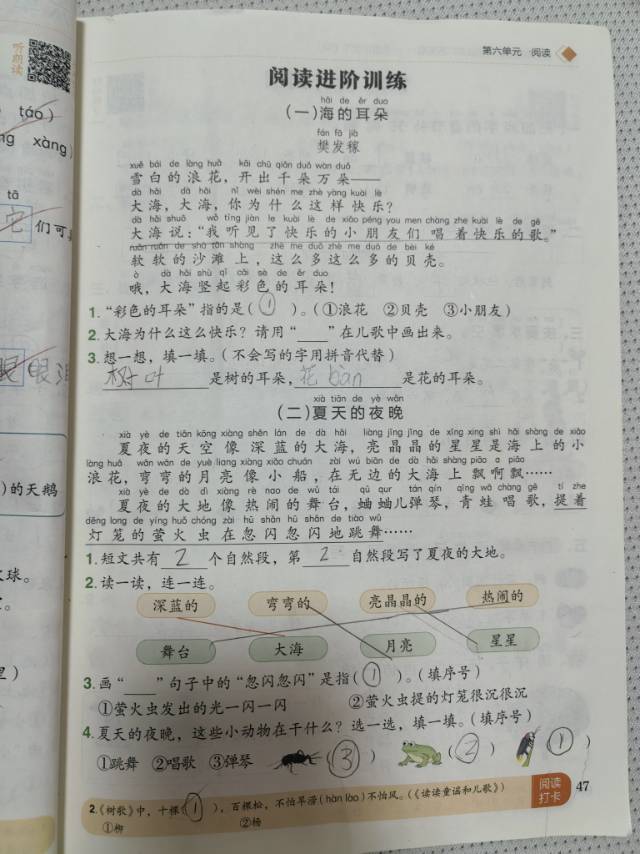 听朗读
táo)
ng xàng)
tā
它 们可
眼 眼泪
)的天鹅
球。
第六单元 · 阅读
阅读进阶训练
hǎi de ěr duo
(一)海的耳朵
fán fā jià
樊发稼
xuě bái de làng huā kāi chū qiān duǒ wàn duǒ
雪白的浪花,开出千朵万朵——
dà hǎi dà hǎi nǐ wèi shén me zhè yàng kuài lè
大海,大海,你为什么这样快乐?
dà hǎi shuō wǒ tīng jiàn le kuài lè de xiǎo péng you men chàng zhe kuài lè de gē
大海说:“我听见了快乐的小朋友们唱着快乐的歌。”
ruǎn ruǎn de shā tān shàng zhè me duō zhè me duō de bèi ké
软软的沙滩上,这么多这么多的贝壳。
ò dà hǎi shù qǐ cǎi sè de ěr duo
哦,大海竖起彩色的耳朵!
1.“彩色的耳朵”指的是( ① )。(①浪花 ②贝壳 ③小朋友)
2.大海为什么这么快乐?请用“____”在儿歌中画出来。
3.想一想,填一填。(不会写的字用拼音代替)
树叶 是树的耳朵,花bàn 是花的耳朵。
xià tiān de yè wǎn
(二)夏天的夜晚
xià yè de tiān kōng xiàng shēn lán de dà hǎi liàng jīng jīng de xīng xing shì hǎi shàng de xiǎo
夏夜的天空像深蓝的大海,亮晶晶的星星是海上的小
làng huā wān wān de yuè liang xiàng xiǎo chuán zài wú biān de dà hǎi shàng piāo a piāo
浪花,弯弯的月亮像小船,在无边的大海上飘啊飘……
xià yè de dà dì xiàng rè nao de wǔ tái qū qur tán qín qīng wā chàng gē tí zhe
夏夜的大地像热闹的舞台,蛐蛐儿弹琴,青蛙唱歌,提着
dēng long de yíng huǒ chóng zài hū shǎn hū shǎn de tiào wǔ
灯笼的萤火虫在忽闪忽闪地跳舞……
1.短文共有 2 个自然段,第 2 自然段写了夏夜的大地。
2.读一读,连一连。
深蓝的 弯弯的 亮晶晶的 热闹的
舞台 大海 月亮 星星
3.画“____”句子中的“忽闪忽闪”是指( ① )。(填序号)
①萤火虫发出的光一闪一闪 ②萤火虫提的灯笼很沉很沉
4.夏天的夜晚,这些小动物在干什么?选一选,填一填。(填序号)
①跳舞 ②唱歌 ③弹琴 ( ③ ) ( ② ) ( ① )
2.《树歌》中,十棵( ① ),百棵松,不怕旱涝(hàn lào)不怕风。(《读读童谣和儿歌》)
①柳 ②杨
阅读
打卡
47